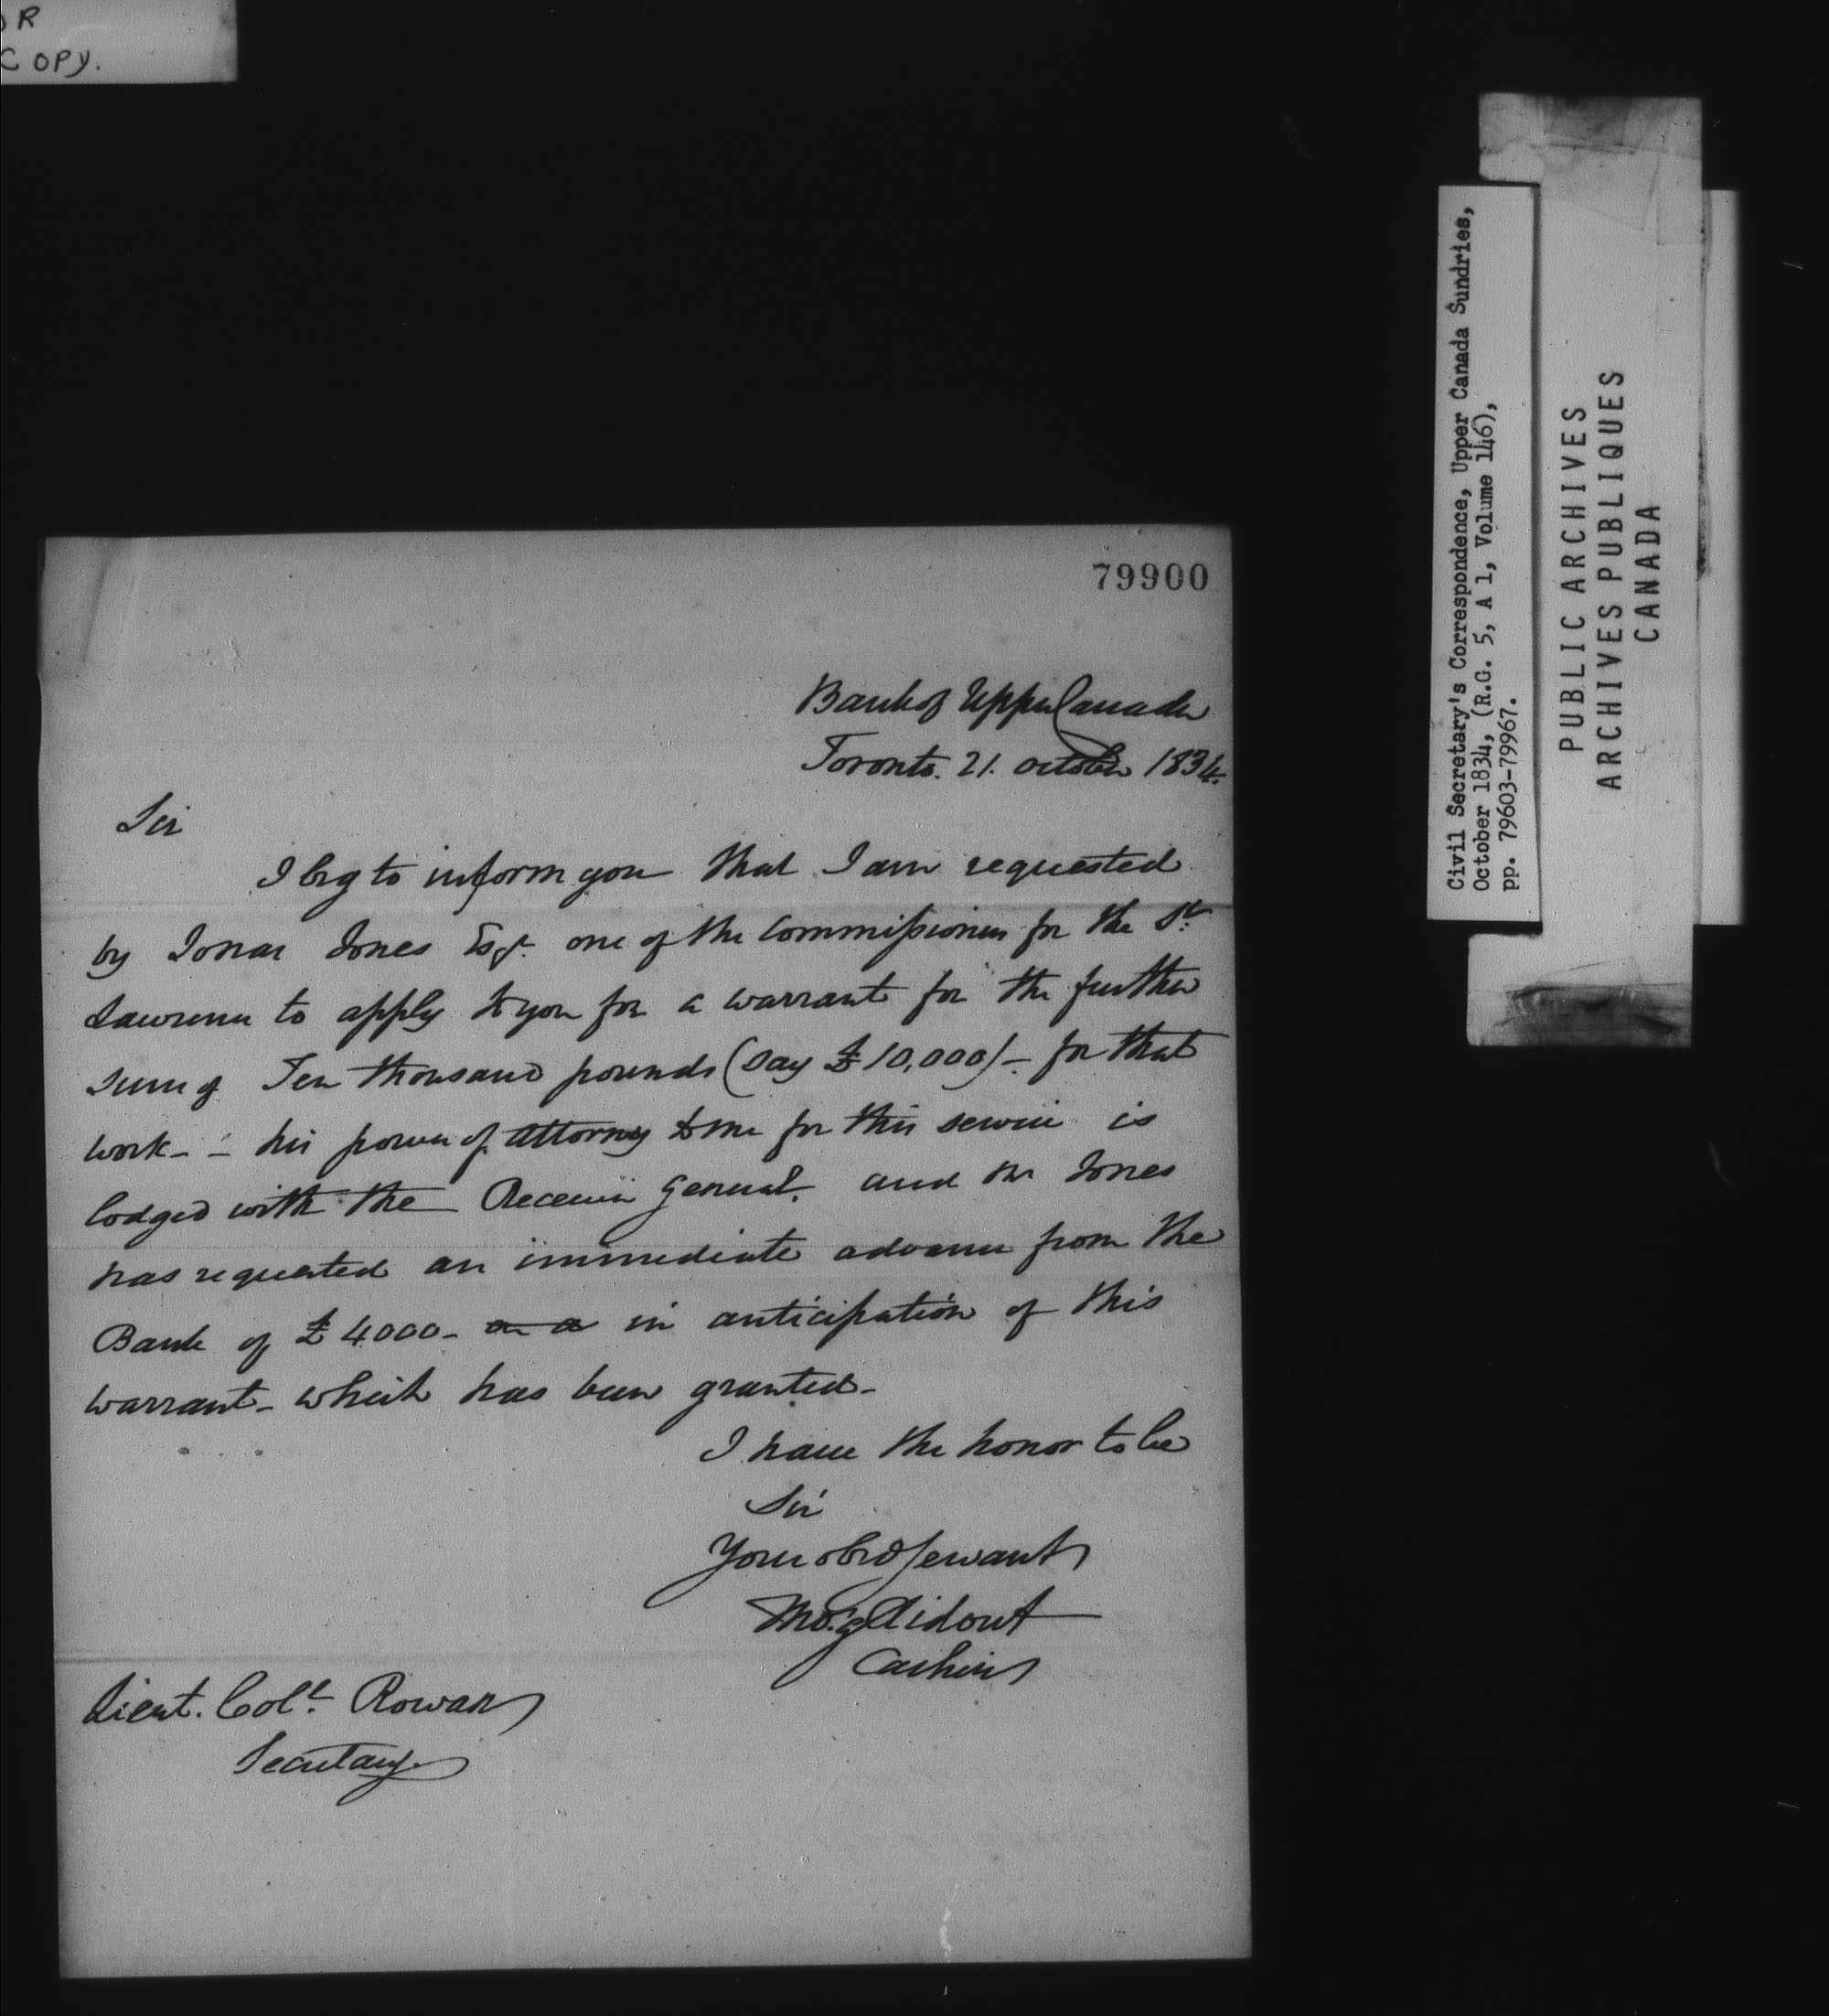 OR
COPY.
79900
Bank of Upper Canada
Toronto. 21. October 1834.
Sir
I beg to inform you that I am requested
by Jonas Jones Esqr. one of the Commissioners for the St.
Lawrence to apply to you for a warrant for the further
sum of Ten thousand pounds (say £10,000)- for that
work- - his power of attorney to me for this service is
lodged with the Receiver General. and Mr Jones
has requested an immediate advance from the
Bank of £4000- in anticipation of this
warrant- which has been granted-
I have the honor to be
Sir
Your obed servant
Thos. G Ridout
Cashier
Lieut. Coll. Rowan
Secretary
Civil Secretary's Correspondence, Upper Canada Sundries,
October 1834, (R.G. 5, A 1, Volume 146),
pp. 79603-79967.
PUBLIC ARCHIVES
ARCHIVES PUBLIQUES
CANADA